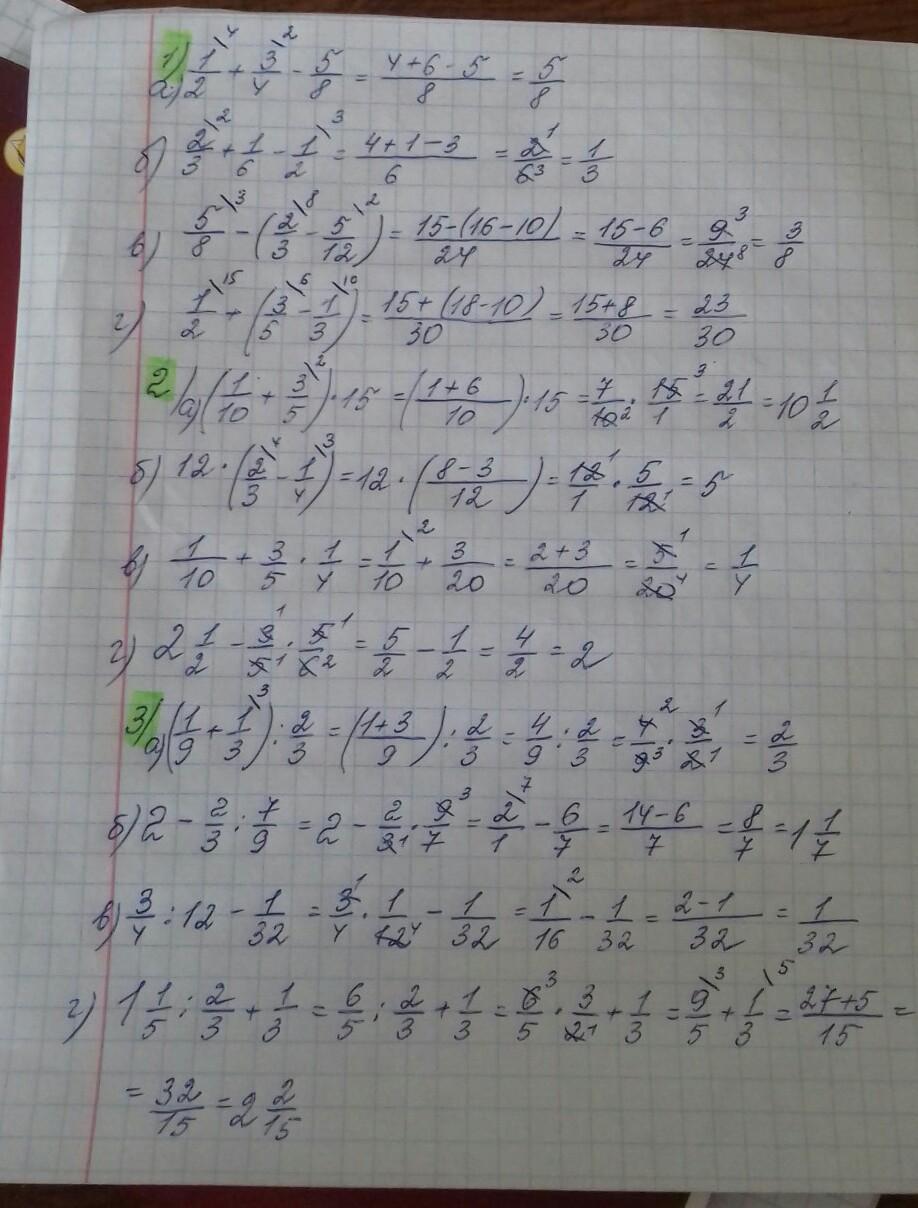 1) а) 1/2\4 + 3/4\2 - 5/8 = (4+6-5)/8 = 5/8
б) 2/3\2 + 1/6 - 1/2\3 = (4+1-3)/6 = 2̶¹/6̶³ = 1/3
в) 5/8\3 - (2/3\8 - 5/12\2) = (15-(16-10))/24 = (15-6)/24 = 9̶³/2̶4̶⁸ = 3/8
г) 1/2\15 + (3/5\6 - 1/3\10) = (15+(18-10))/30 = (15+8)/30 = 23/30
2) а) (1/10 + 3/5\2) · 15 = ((1+6)/10) · 15 = 7/1̶0̶² · 1̶5̶³/1 = 21/2 = 10 1/2
б) 12 · (2/3\4 - 1/4\3) = 12 · ((8-3)/12) = 1̶2̶¹/1 · 5/1̶2̶¹ = 5
в) 1/10 + 3/5 · 1/4 = 1/10\2 + 3/20 = (2+3)/20 = 5̶¹/2̶0̶⁴ = 1/4
г) 2 1/2 - 3̶¹/5̶¹ · 5̶¹/6̶² = 5/2 - 1/2 = 4/2 = 2
3) а) (1/9 + 1/3\3) : 2/3 = ((1+3)/9) : 2/3 = 4/9 : 2/3 = 4̶²/9̶³ · 3̶¹/2̶¹ = 2/3
б) 2 - 2/3 : 7/9 = 2 - 2/3̶¹ · 9̶³/7 = 2/1\7 - 6/7 = (14-6)/7 = 8/7 = 1 1/7
в) 3/4 : 12 - 1/32 = 3̶¹/4 · 1/1̶2̶⁴ - 1/32 = 1/16\2 - 1/32 = (2-1)/32 = 1/32
г) 1 1/5 : 2/3 + 1/3 = 6/5 : 2/3 + 1/3 = 6̶³/5 · 3/2̶¹ + 1/3 = 9/5\3 + 1/3\5 = (27+5)/15 =
= 32/15 = 2 2/15